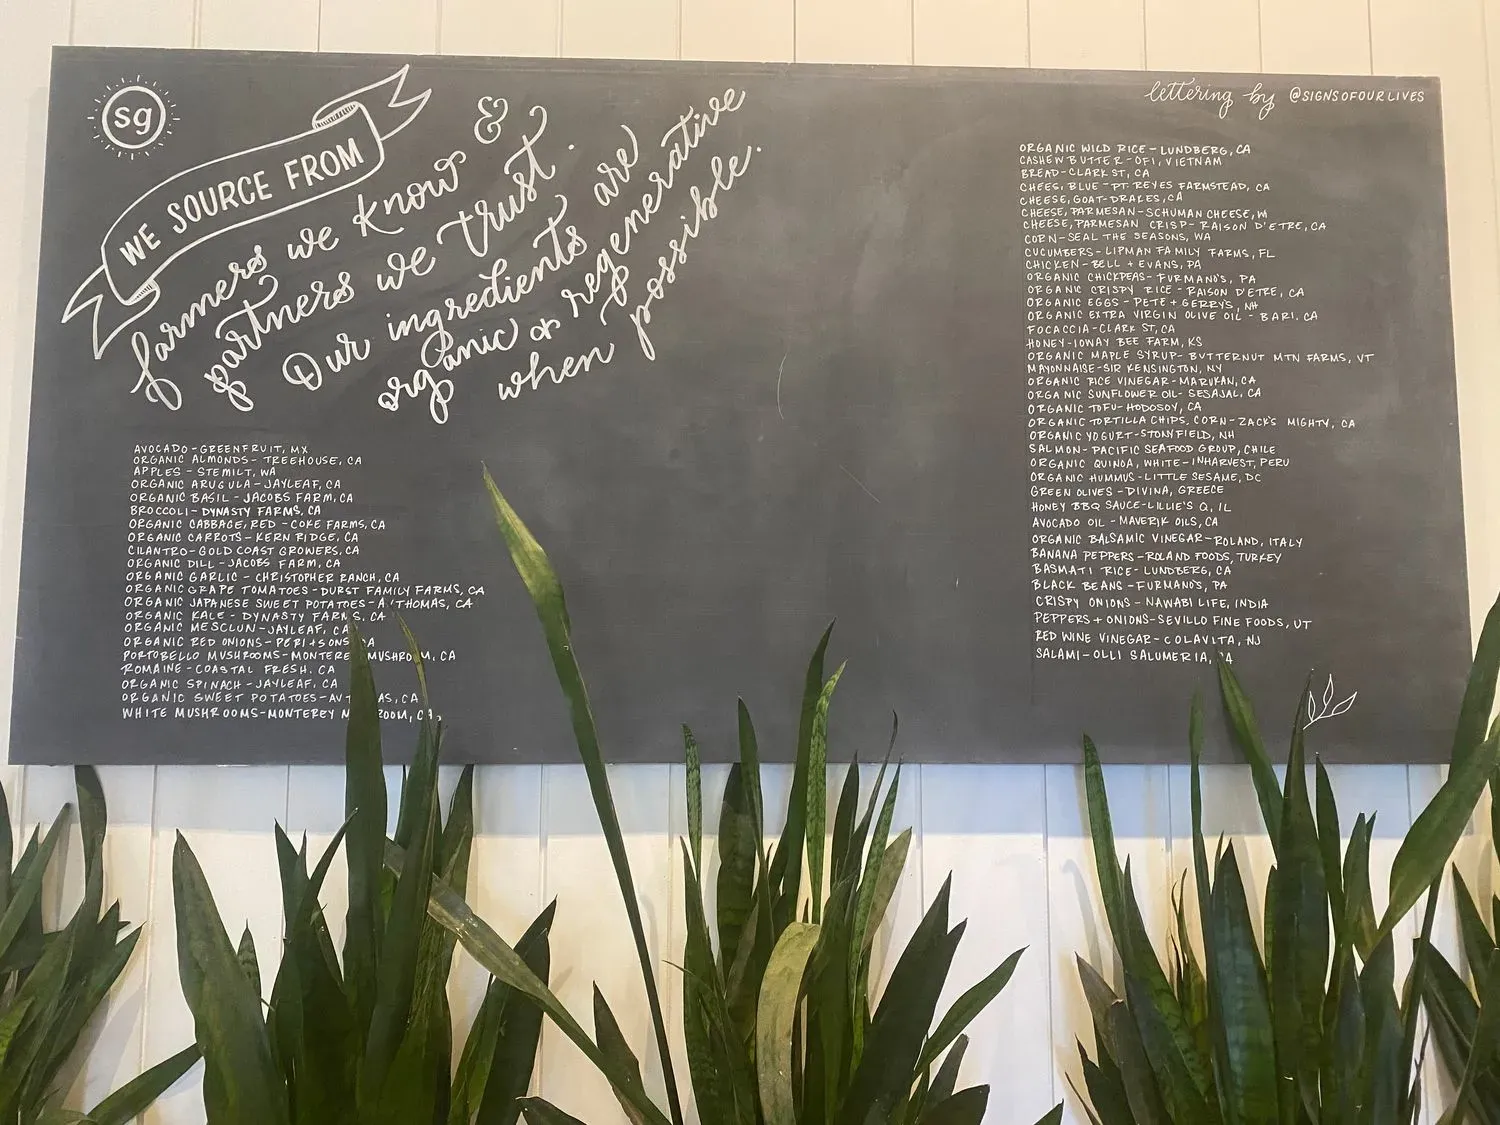 sg
WE SOURCE FROM
farmers we know &
partners we trust.
Our ingredients are
organic or regenerative
when possible.
AVOCADO - GREENFRUIT, MX
ORGANIC ALMONDS - TREEHOUSE, CA
APPLES - STEMILT, WA
ORGANIC ARUGULA - JAYLEAF, CA
ORGANIC BASIL - JACOBS FARM, CA
BROCCOLI - DYNASTY FARMS, CA
ORGANIC CABBAGE, RED - COKE FARMS, CA
ORGANIC CARROTS - KERN RIDGE, CA
CILANTRO - GOLD COAST GROWERS, CA
ORGANIC DILL - JACOBS FARM, CA
ORGANIC GARLIC - CHRISTOPHER RANCH, CA
ORGANIC GRAPE TOMATOES - DURST FAMILY FARMS, CA
ORGANIC JAPANESE SWEET POTATOES - A THOMAS, CA
ORGANIC KALE - DYNASTY FARMS, CA
ORGANIC MESCLUN - JAYLEAF, CA
ORGANIC RED ONIONS - PERI + SONS CA
PORTOBELLO MUSHROOMS - MONTEREY MUSHROOM, CA
ROMAINE - COASTAL FRESH, CA
ORGANIC SPINACH - JAYLEAF, CA
ORGANIC SWEET POTATOES - CA
WHITE MUSHROOMS - MONTEREY MUSHROOM, CA
lettering by @SIGNSOFOURLIVES
ORGANIC WILD RICE - LUNDBERG, CA
CASHEW BUTTER - OFI, VIETNAM
BREAD - CLARK ST, CA
CHEES, BLUE - PT. REYES FARMSTEAD, CA
CHEESE, GOAT - DRAKES, CA
CHEESE, PARMESAN - SCHUMAN CHEESE, WI
CHEESE, PARMESAN CRISP - RAISON D'ETRE, CA
CORN - SEAL THE SEASONS, WA
CUCUMBERS - LIPMAN FAMILY FARMS, FL
CHICKEN - BELL + EVANS, PA
ORGANIC CHICKPEAS - FURMANO'S, PA
ORGANIC CRISPY RICE - RAISON D'ETRE, CA
ORGANIC EGGS - PETE + GERRY'S, NH
ORGANIC EXTRA VIRGIN OLIVE OIL - BARI, CA
FOCACCIA - CLARK ST, CA
HONEY - IOWAY BEE FARM, KS
ORGANIC MAPLE SYRUP - BUTTERNUT MTN FARMS, VT
MAYONNAISE - SIR KENSINGTON, NY
ORGANIC RICE VINEGAR - MARUKAN, CA
ORGANIC SUNFLOWER OIL - SESAJAL, CA
ORGANIC TOFU - HODOSOY, CA
ORGANIC TORTILLA CHIPS, CORN - ZACK'S MIGHTY, CA
ORGANIC YOGURT - STONYFIELD, NH
SALMON - PACIFIC SEAFOOD GROUP, CHILE
ORGANIC QUINOA, WHITE - INHARVEST, PERU
ORGANIC HUMMUS - LITTLE SESAME, DC
GREEN OLIVES - DIVINA, GREECE
HONEY BBQ SAUCE - LILLIE'S Q, IL
AVOCADO OIL - MAVERIK OILS, CA
ORGANIC BALSAMIC VINEGAR - ROLAND, ITALY
BANANA PEPPERS - ROLAND FOODS, TURKEY
BASMATI RICE - LUNDBERG, CA
BLACK BEANS - FURMANO'S, PA
CRISPY ONIONS - NAWABI LIFE, INDIA
PEPPERS + ONIONS - SEVILLO FINE FOODS, UT
RED WINE VINEGAR - COLAVITA, NJ
SALAMI - OLLI SALUMERIA,